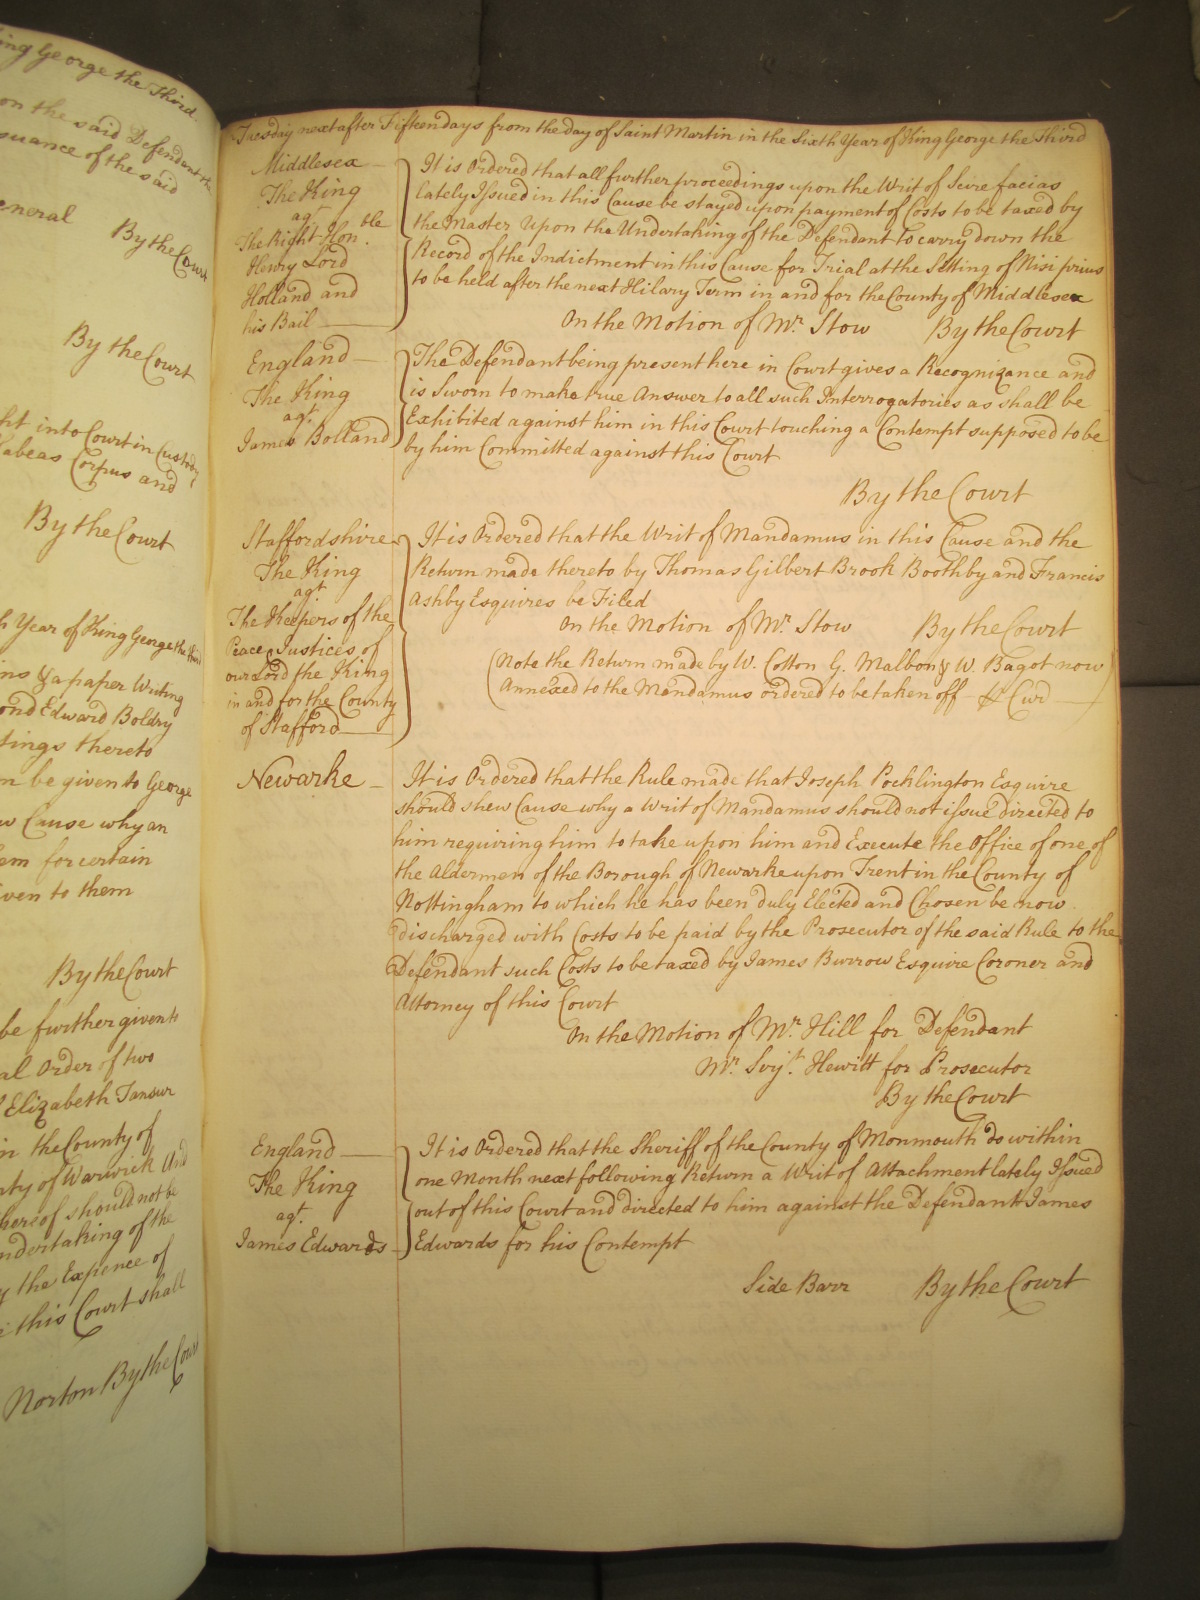 King George the Third.
on the said Defendant the
suance of the said
eneral
By the Court
By the Court
ht into Court in Custody
Habeas Corpus and
By the Court
h Year of King George the Third
ins & a paper Writing
ond Edward Boldry
tings thereto
n be given to George
w Cause why an
em for certain
iven to them
By the Court
be further given to
al Order of two
Elizabeth Tansur
in the County of
nty of Warwick And
hereof should not be
ndertaking of the
y the Expence of
this Court shall
Norton By the Court
Tuesday next after Fifteen days from the day of Saint Martin in the Sixth Year of King George the Third
Middlesex
The King
agt
The Right Hon.ble
Henry Lord
Holland and
his Bail
It is Ordered that all further proceedings upon the Writ of Scire facias
lately Issued in this Cause be stayed upon payment of Costs to be taxed by
the Master Upon the Undertaking of the Defendant to carry down the
Record of the Indictment in this Cause for Trial at the Sitting of Nisi prius
to be held after the next Hilary Term in and for the County of Middlesex
On the Motion of Mr. Stow By the Court
England
The King
agt.
James Bolland
The Defendant being present here in Court gives a Recognizance and
is Sworn to make true Answer to all such Interrogatories as shall be
Exhibited against him in this Court touching a Contempt supposed to be
by him Committed against this Court
By the Court
Staffordshire
The King
agt
The Keepers of the
Peace & Justices of
our Lord the King
in and for the County
of Stafford
It is Ordered that the Writ of Mandamus in this Cause and the
Return made thereto by Thomas Gilbert Brook Boothby and Francis
Ashby Esquires be Filed
On the Motion of Mr. Stow By the Court
(Note the Return made by W. Cotton G. Malbon & W. Bagot now
Annexed to the Mandamus ordered to be taken off
Newarke
It is Ordered that the Rule made that Joseph Pocklington Esquire
should shew Cause why a Writ of Mandamus should not issue directed to
him requiring him to take upon him and Execute the Office of one of
the Aldermen of the Borough of Newarke upon Trent in the County of
Nottingham to which he has been duly Elected and Chosen be now
discharged with Costs to be paid by the Prosecutor of the said Rule to the
Defendant such Costs to be taxed by James Burrow Esquire Coroner and
Attorney of this Court
On the Motion of Mr. Hill for Defendant
Mr. Serjt. Hewitt for Prosecutor
By the Court
England
The King
agt.
James Edwards
It is Ordered that the Sheriff of the County of Monmouth do within
one Month next following Return a Writ of Attachment lately Issued
out of this Court and directed to him against the Defendant James
Edwards for his Contempt
Side Barr By the Court